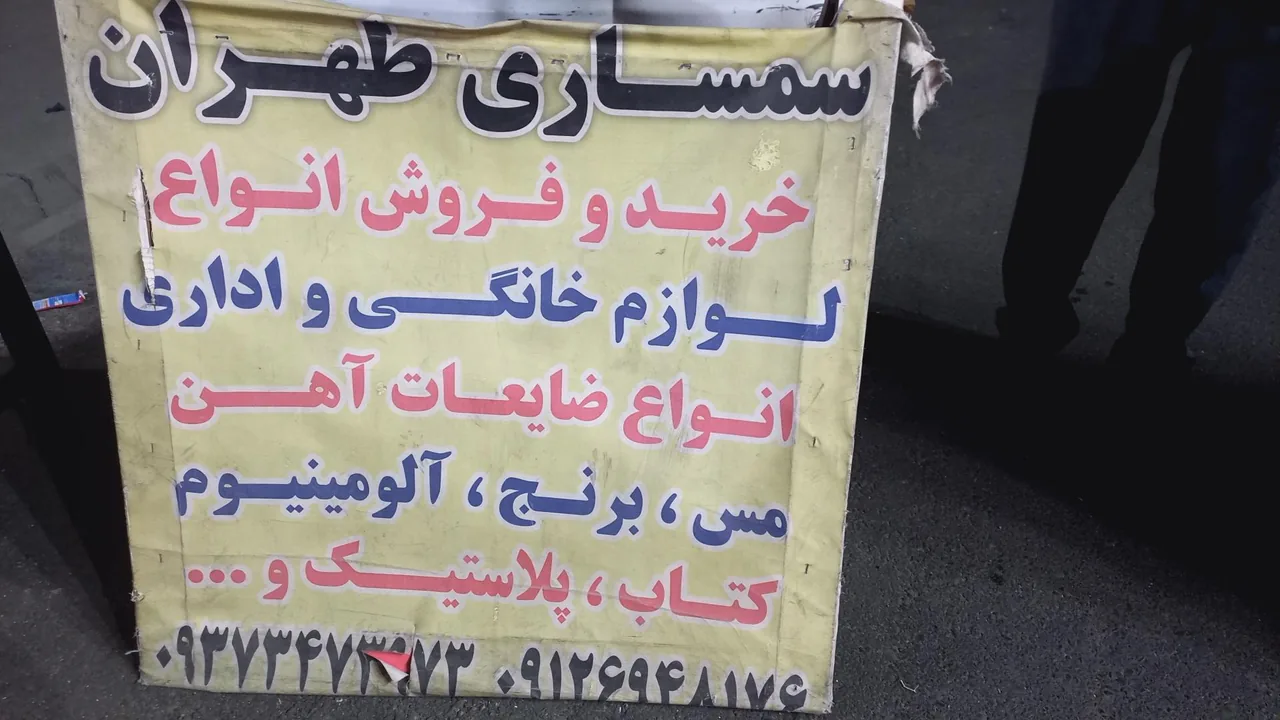 سمساری طهران
خرید و فروش انواع
لوازم خانگی و اداری
انواع ضایعات آهن
مس ، برنج ، آلومینیوم
کتاب ، پلاستیک و ...
۰۹۱۲۶۹۴۸۱۷۶